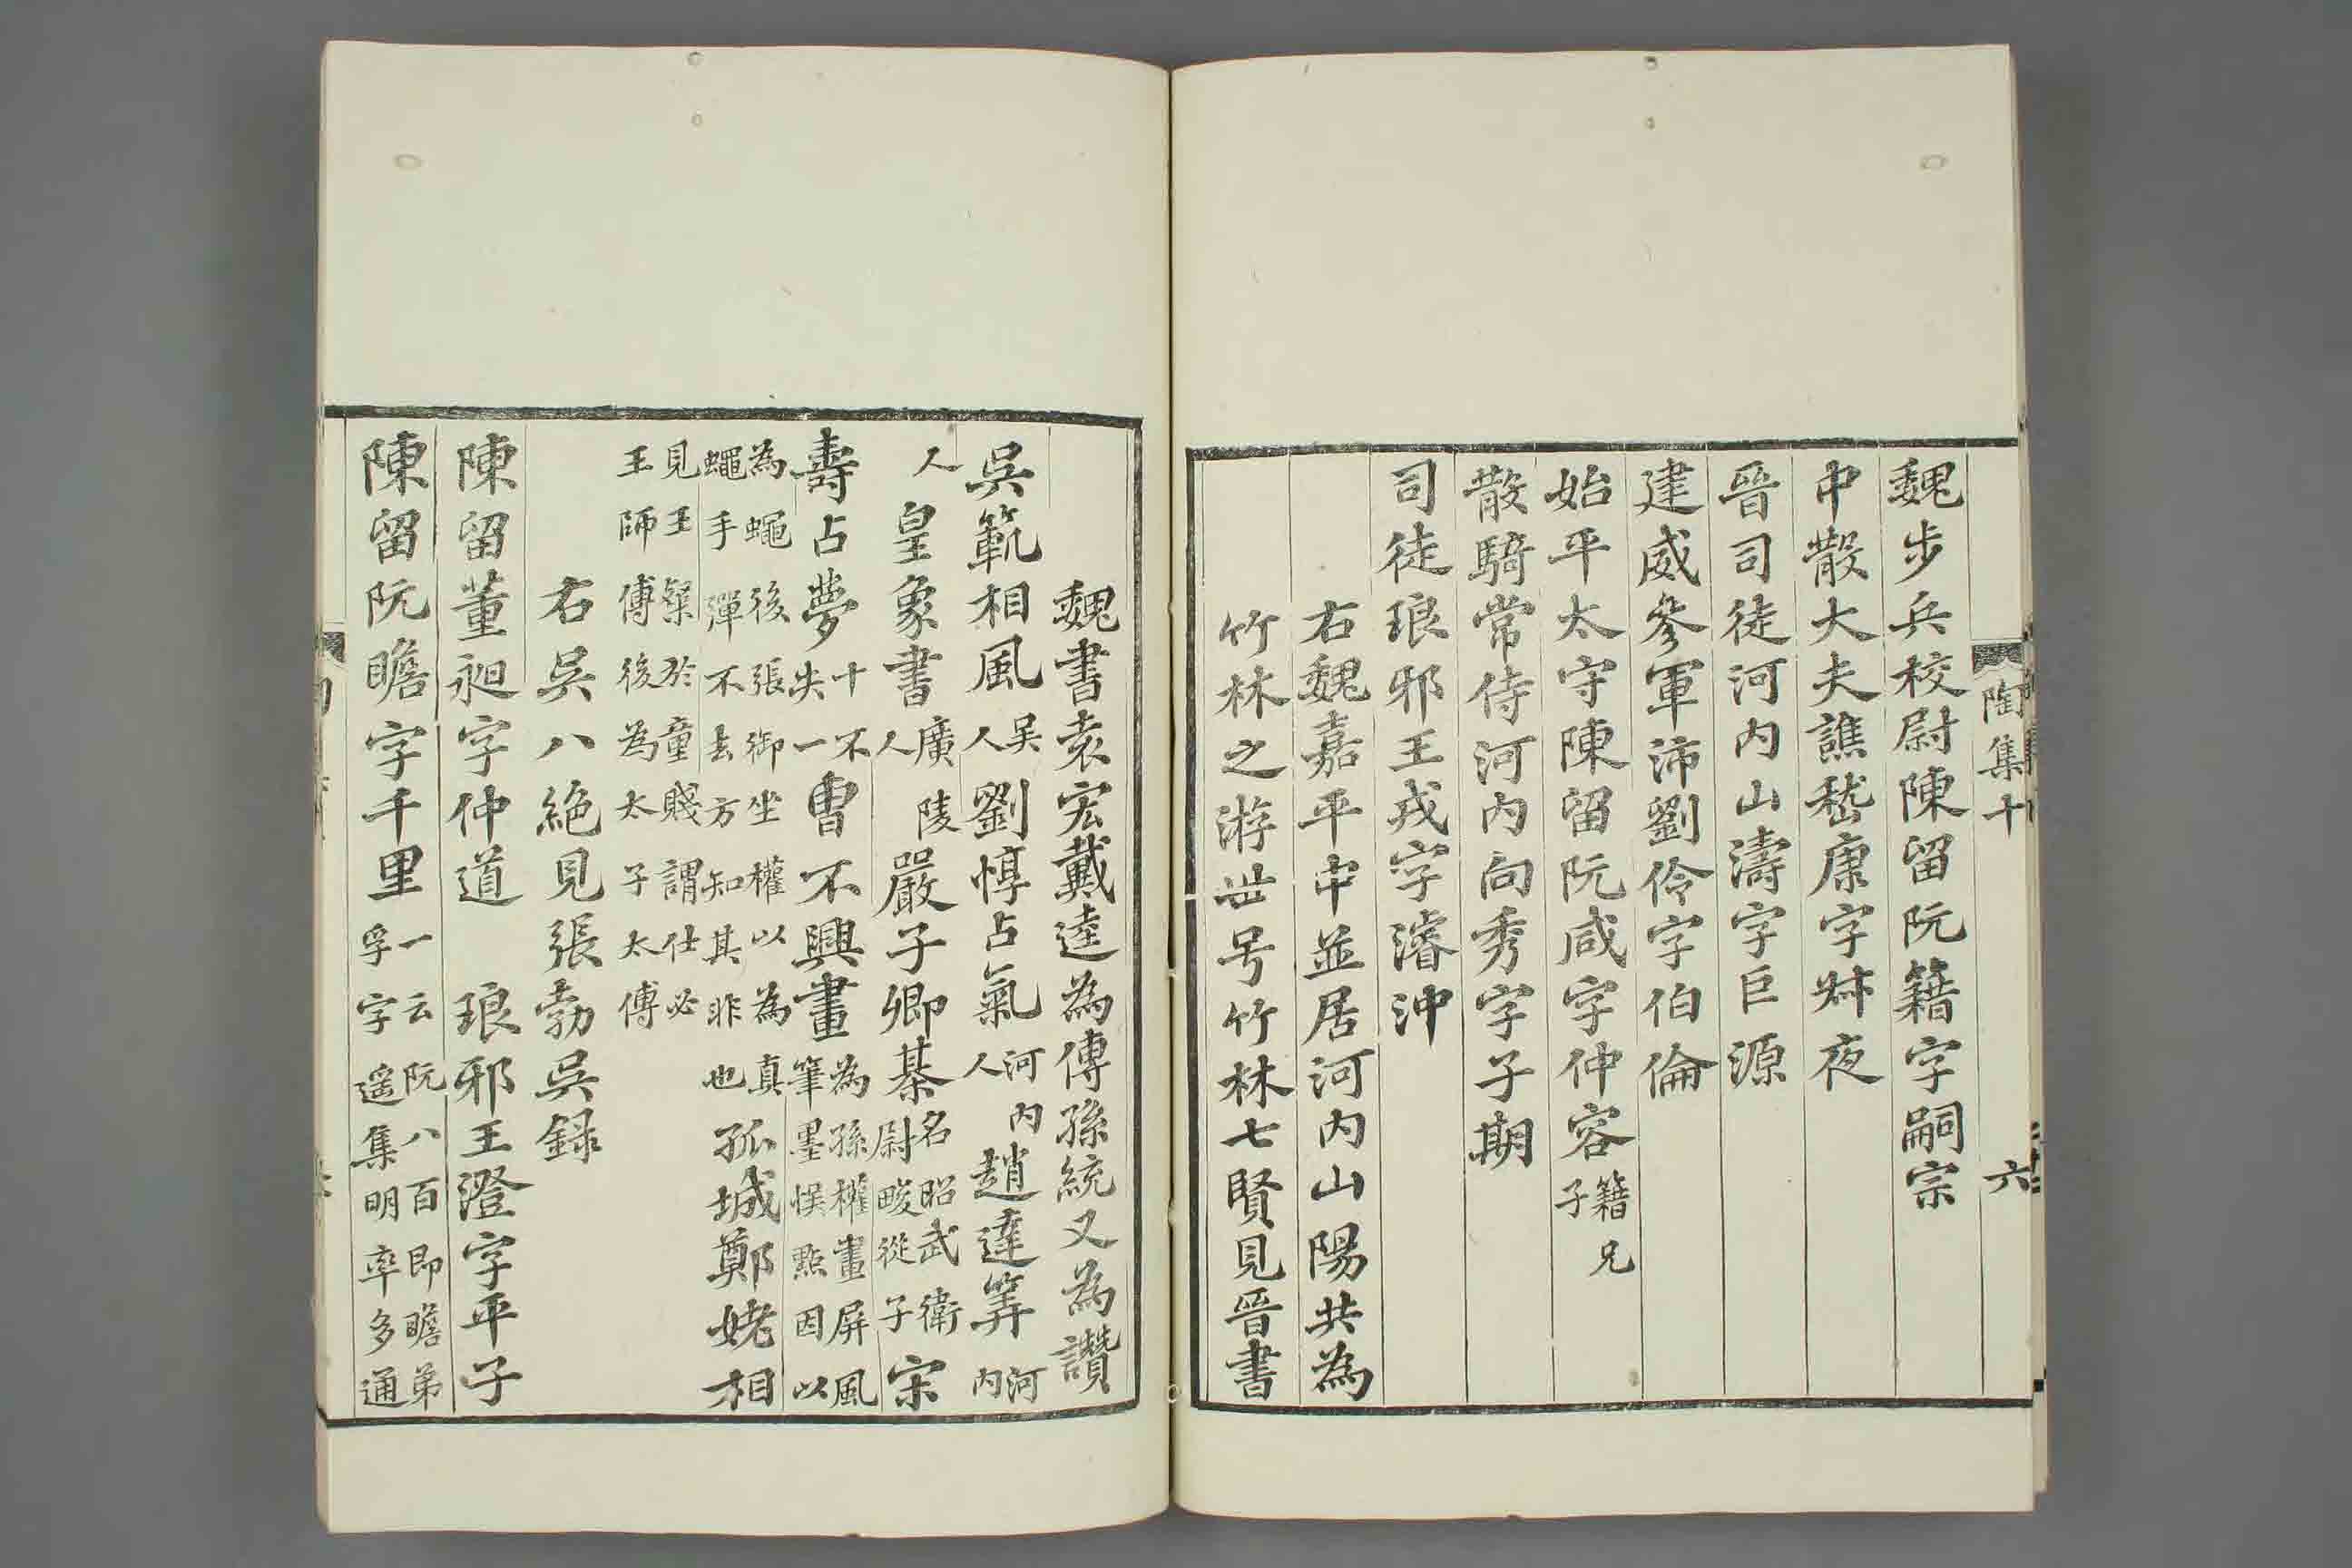 陶集十 六
魏步兵校尉陳留阮籍字嗣宗
中散大夫譙嵇康字叔夜
晉司徒河內山濤字巨源
建威參軍沛劉伶字伯倫
始平太守陳留阮咸字仲容籍兄子
散騎常侍河內向秀字子期
司徒琅邪王戎字濬沖
右魏嘉平中並居河內山陽共為
竹林之游世号竹林七賢見晉書
魏書袁宏戴逵為傳孫統又為讚
吳範相風吴人劉惇占氣河內人趙達筭河內
人皇象書廣陵人嚴子卿棊名昭武衛尉畯從子宋
壽占夢十不失一曹不興畫為孫權畫屏風筆墨悞㸃因以
為蠅後張御坐權以為真蠅手彈不去方知其非也孤城鄭姥相
見王粲於童賤謂仕必王師傅後為太子太傅
右吳八絶見張勃吳録
陳留董昶字仲道 琅邪王澄字平子
陳留阮瞻字千里一云阮八百即瞻弟孚字遥集明率多通